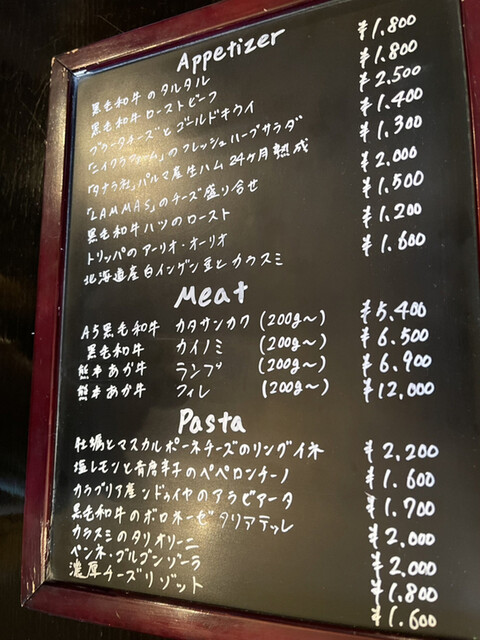 Appetizer
黒毛和牛のタルタル ¥1.800
黒毛和牛ローストビーフ ¥1.800
ブラータチーズとゴールドキウイ ¥2.500
「ニイクラファーム」のフレッシュハーブサラダ ¥1.400
「タナラ社」パルマ産生ハム 24ヶ月熟成 ¥1.300
「LAMMAS」のチーズ盛り合せ ¥2.000
黒毛和牛ハツのロースト ¥1.500
トリッパのアーリオ・オーリオ ¥1.200
北海道産白インゲン豆とカラスミ ¥1.600
Meat
A5黒毛和牛 カタサンカク (200g〜) ¥5.400
黒毛和牛 カイノミ (200g〜) ¥6.500
熊本あか牛 ランプ (200g〜) ¥6.900
熊本あか牛 フィレ (200g〜) ¥12,000
Pasta
牡蠣とマスカルポーネチーズのリングイネ ¥2,200
塩レモンと青唐辛子のペペロンチーノ ¥1.600
カラブリア産ンドゥイヤのアラビアータ ¥1.700
黒毛和牛のボロネーゼ タリアテッレ ¥2.000
カラスミのタリオリーニ ¥2.000
ペンネ・ゴルゴンゾーラ ¥1.800
濃厚チーズリゾット ¥1.600